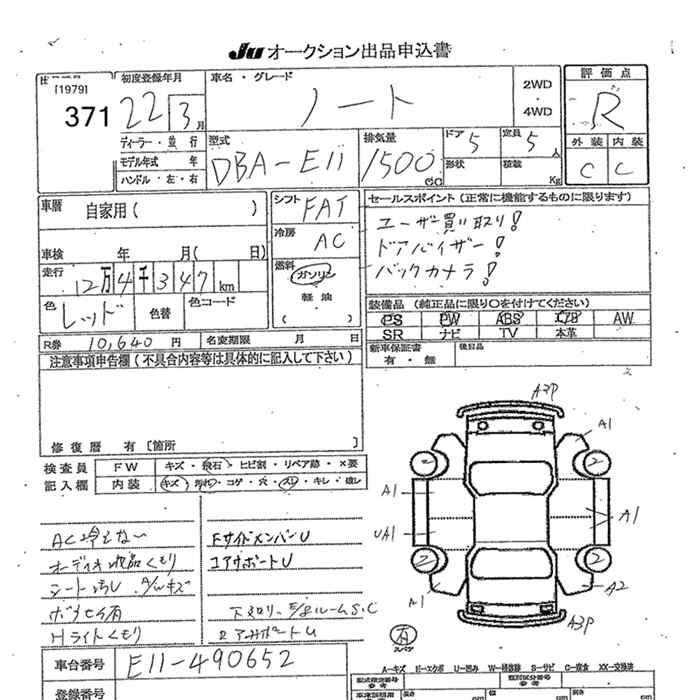 JU オークション出品申込書
[1979]
371
初度登録年月
22 3月
車名・グレード
ノート
2WD
・
4WD
評価点
R
ディーラー・並行
モデル年式 年
ハンドル・左・右
型式
DBA-E11
排気量
1500 cc
ドア 5
定員 5人
形状
積載 Kg
外装 内装
C C
車歴 自家用( )
車検 年 月( 日)
走行 12万4千347km
色 レッド 色替 色コード
シフト FAT
冷房 AC
燃料 ガソリン
軽油
( )
セールスポイント(正常に機能するものに限ります)
ユーザー買い取り!
ドアバイザー!
バックカメラ!
装備品(純正品に限り○を付けてください)
PS PW ABS エアB AW
SR ナビ TV 本革
R券 10,640円 名変期限 月 日
新車保証書 有・無
後日品
注意事項申告欄(不具合内容等は具体的に記入して下さい)
修復歴 有[箇所 ]
検査員 FW キズ・飛石・ヒビ割・リペア跡・×要
記入欄 内装 キズ・汚れ・コゲ・穴・スレ・キレ・破レ
オーディオ液晶くもり
シート汚レ
Hライトくもり
FサイドメンバーU
コアサポートU
A3P
A1
2 2
A1
A1
UA1
2 2
A1
A2
A3P
スペア
車台番号 E11-490652
A-キズ E-エクボ U-凹み W-補修跡 S-サビ C-腐食 XX-交換済
登録番号
型式指定番号
類別区分番号
長さ cm
幅 cm
高さ cm